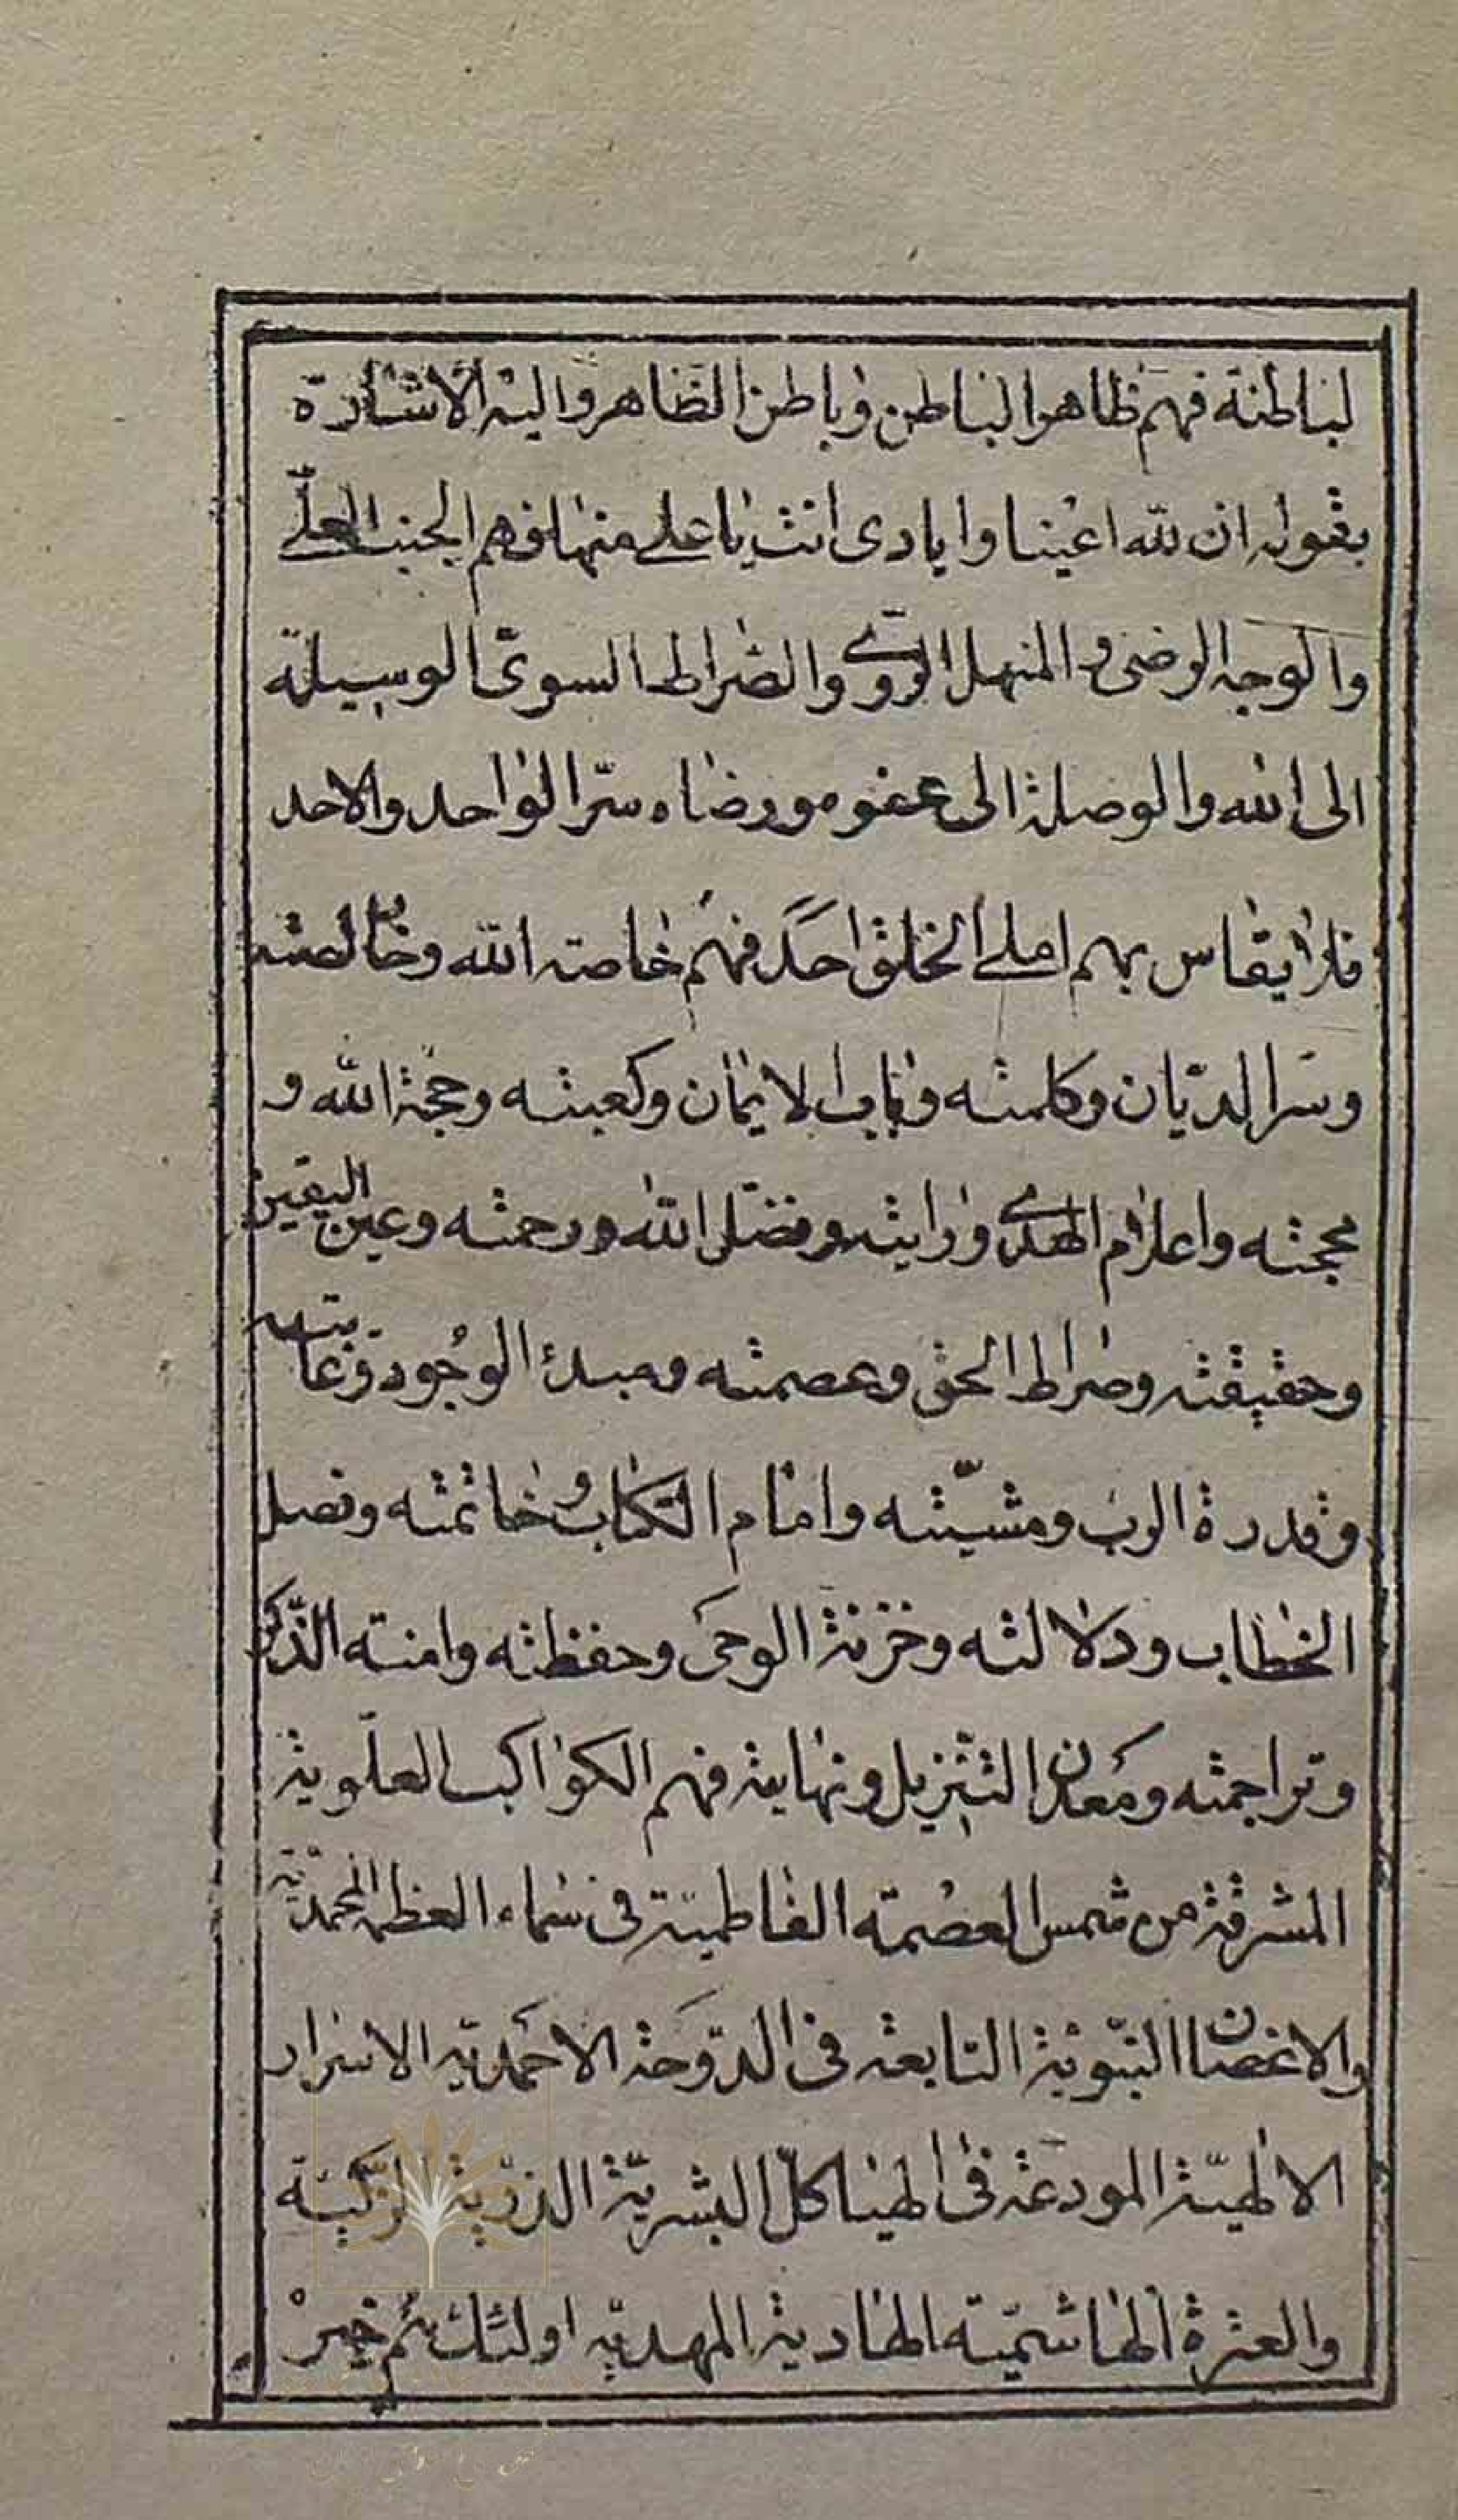 لباطنة فهم ظاهر الباطن وباطن الظاهر واليه الاشارة
بقوله ان لله اعينا وايادى انت يا على منها فهم الجنب العلّى
والوجه الوضى والمنهل الروّى والصراط السوىّ الوسيلة
الى الله والوصلة الى عفوه ورضاه سرّ الواحد والاحد
فلا يقاس بهم الخلق احد فهم خاصة الله وخالصته
وسر الديّان وكلمته وباب الايمان وكعبته وحجة الله و
محجته واعلام الهدى ورايته وفضل الله ورحمته وعين اليقين
وحقيقته وصراط الحق وعصمته ومبدئ الوجود وغايته
وقدرة الرب ومشيّته وامام الكتاب وخاتمته وفصل
الخطاب ودلالته وخزنة الوحى وحفظته وامنته الذّكر
وتراجمته ومعدن التنزيل ونهايته فهم الكواكب العلّوية
المشرقة من شمس العصمة الفاطمية فى سماء العظمة المحمديّة
والاغصان النبّوية التابعة فى الدوّحة الاحمدية الاسرار
الالهيّة المودعة فى الهياكلّ البشريّة الذرّية الزكّية
والعترة الهاشميّة الهادية المهدية اولئك هم خير